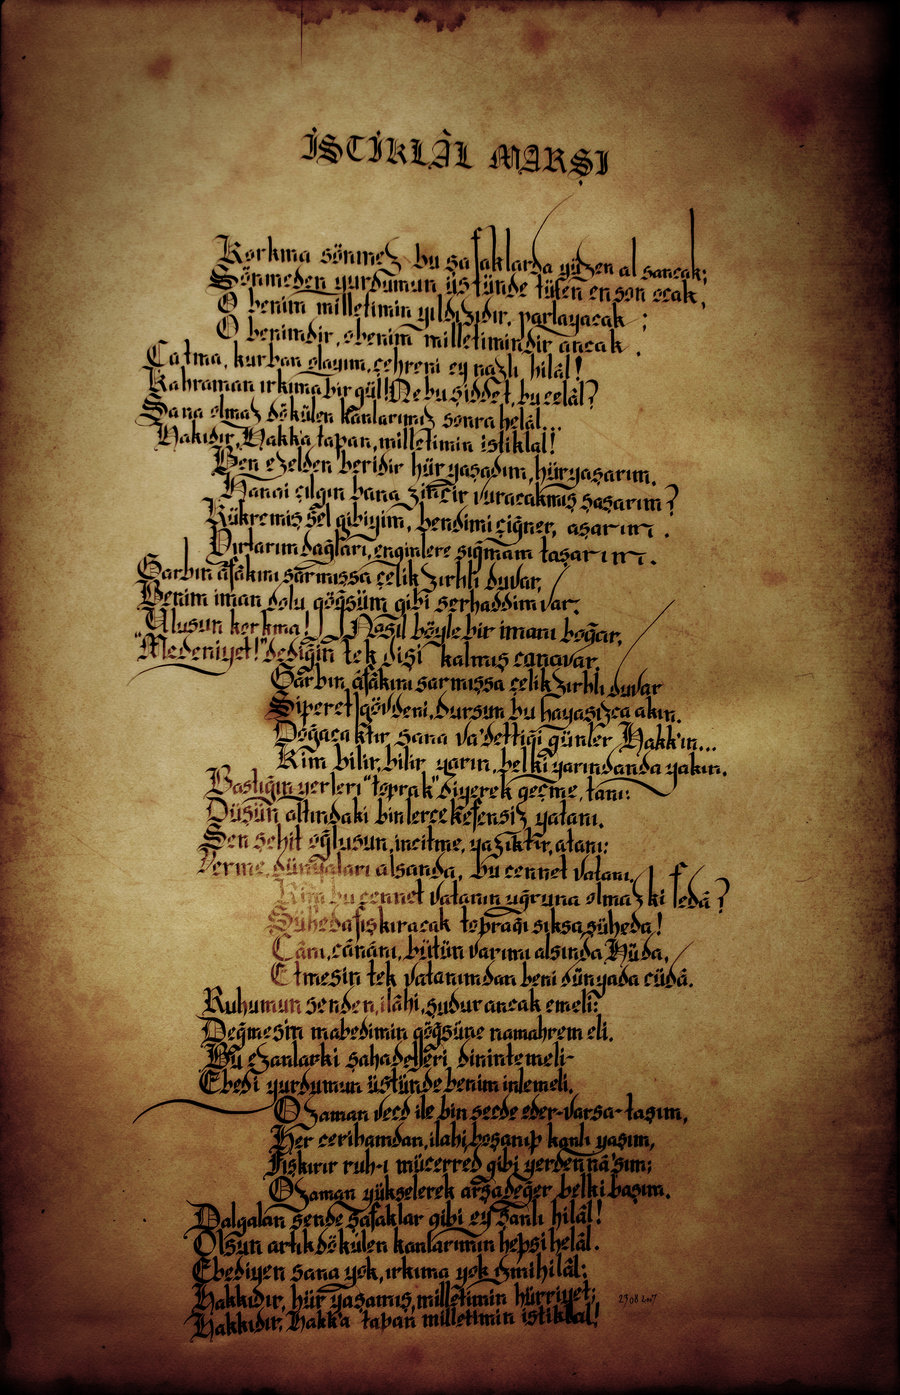 İSTİKLÂL MARŞI
Korkma sönmez bu şafaklarda yüzen al sancak;
Sönmeden yurdumun üstünde tüten en son ocak,
O benim milletimin yıldızıdır, parlayacak;
O benimdir, o benim milletimindir ancak.
Çatma, kurban olayım, çehreni ey nazlı hilâl!
Kahraman ırkıma bir gül! Ne bu şiddet, bu celâl?
Sana olmaz dökülen kanlarımız sonra helâl...
Hakıdır, Hakk'a tapan, milletimin istiklal!
Ben ezelden beridir hür yaşadım, hür yaşarım.
Hangi çılgın bana zincir vuracakmış şaşarım?
Kükremiş sel gibiyim, bendimi çiğner, aşarım.
Yırtarım dağları, enginlere sığmam taşarım.
Garbın âfâkını sarmışsa çelik zırhlı duvar,
Benim iman dolu göğsüm gibi serhaddim var.
Ulusun korkma! Nasıl böyle bir imanı boğar,
"Medeniyet!" dediğin tek dişi kalmış canavar.
Garbın âfâkını sarmışsa çelik zırhlı duvar
Siper et gövdeni, dursun bu hayasızca akın.
Doğacaktır sana va'dettiği günler Hakk'ın...
Kim bilir, bilir yarın, belki yarından da yakın.
Bastığın yerleri "toprak" diyerek geçme, tanı:
Düşün altındaki binlerce kefensiz yatanı.
Sen şehit oğlusun, incitme, yazıktır, atanı:
Verme, dünyaları alsanda, bu cennet vatanı.
Kim bu cennet vatanın uğruna olmaz ki fedâ?
Şüheda fışkıracak toprağı sıksa şüheda!
Cânı, cânânı, bütün varımı alsında Hüda,
Etmesin tek vatanımdan beni dünyada cüdâ.
Ruhumun senden, ilâhi, şudur ancak emeli:
Değmesin mabedimin göğsüne namahrem eli.
Bu ezanlar ki şahadetleri dinin temeli-
Ebedi yurdumun üstünde benim inlemeli.
O zaman vecd ile bin secde eder-varsa-taşım,
Her cerihamdan, ilahi, boşanıp kanlı yaşım,
Fışkırır ruh-ı mücerred gibi yerden nâ'şım;
O zaman yükselerek arşa değer belki başım.
Dalgalan sende şafaklar gibi ey şanlı hilâl!
Olsun artık dökülen kanlarımın hepsi helâl.
Ebediyen sana yok, ırkıma yok izmihilâl:
Hakkıdır, hür yaşamış, milletimin hürriyet;
Hakkıdır, Hakk'a tapan milletimin istiklal!
23 08 2007